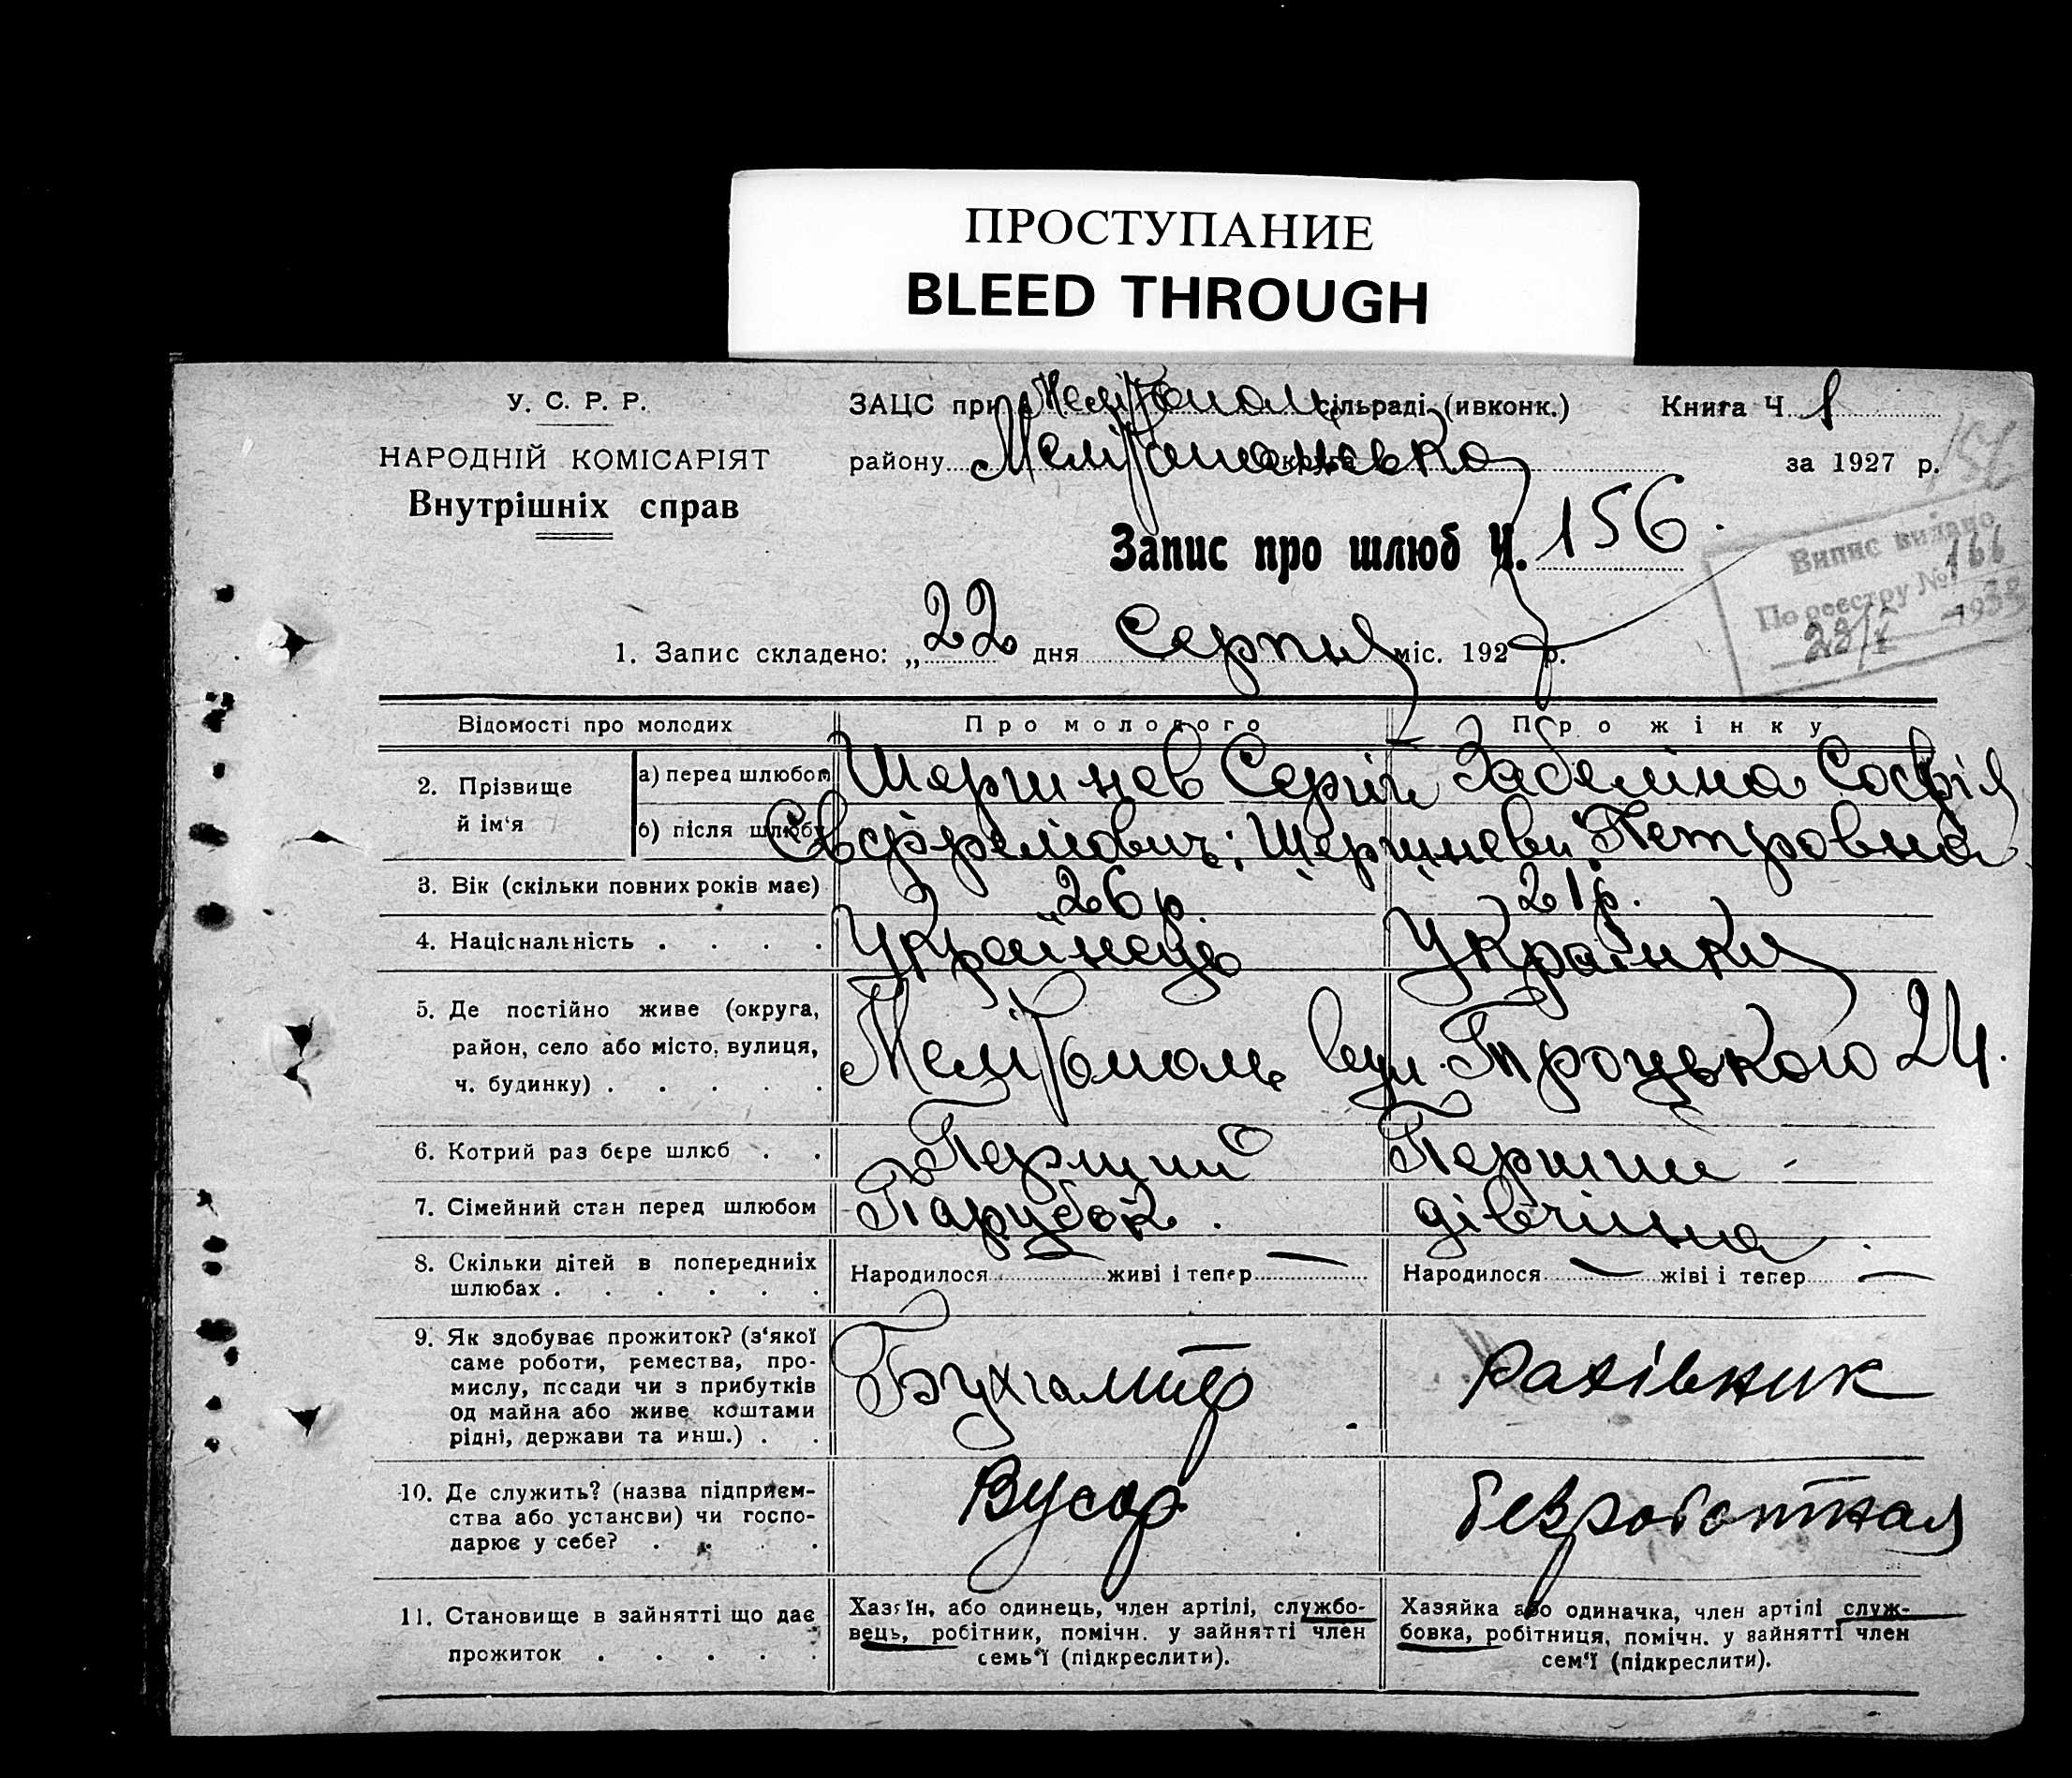 ПРОСТУПАНИЕ
BLEED THROUGH
У. С. Р. Р.
НАРОДНІЙ КОМІСАРІЯТ
Внутрішніх справ
ЗАЦС при Мелітополь сільраді (ивконк.)
району Мелітопольська округа
Книга Ч. 1
за 1927 р.
156
Запис про шлюб Ч. 156.
Випис видано
По реєстру № 166
23/X 1938
1. Запис складено: „22 дня Серпня міс. 1927 р.
Відомості про молодих
Про молодого
Про жінку
2. Прізвище й ім‘я
а) перед шлюбом
б) після шлюбу
Шершнев Сергій
Євфремович: Шершневи
Забеліна Софія
Петровна
3. Вік (скільки повних років має)
26 р.
21 р.
4. Національність . . . .
Українець
Українка
5. Де постійно живе (округа,
район, село або місто, вулиця,
ч. будинку) . . . . .
Мелітополь вул. Троцького 24.
6. Котрий раз бере шлюб . .
Перший
Перший -
7. Сімейний стан перед шлюбом
Парубок.
дівчина.
8. Скільки дітей в попередниіх
шлюбах . . . . . .
Народилося живі і тепер —
Народилося — жіві і тепер —
9. Як здобуває прожиток? (з‘якої
саме роботи, ремества, про-
мислу, посади чи з прибутків
од майна або живе коштами
рідні, держави та инш.) . .
Бухгалтер
рахівник
10. Де служить? (назва підприєм-
ства або устансви) чи госпо-
дарює у себе? . . .
Вусор
безроботная
11. Становище в зайнятті що дає
прожиток . . . . .
Хазяїн, або одинець, член артілі, службо-
вець, робітник, помічн. у зайнятті член
семь‘ї (підкреслити).
Хазяйка або одиначка, член артілі служ-
бовка, робітниця, помічн. у зайнятті член
сем‘ї (підкреслити).